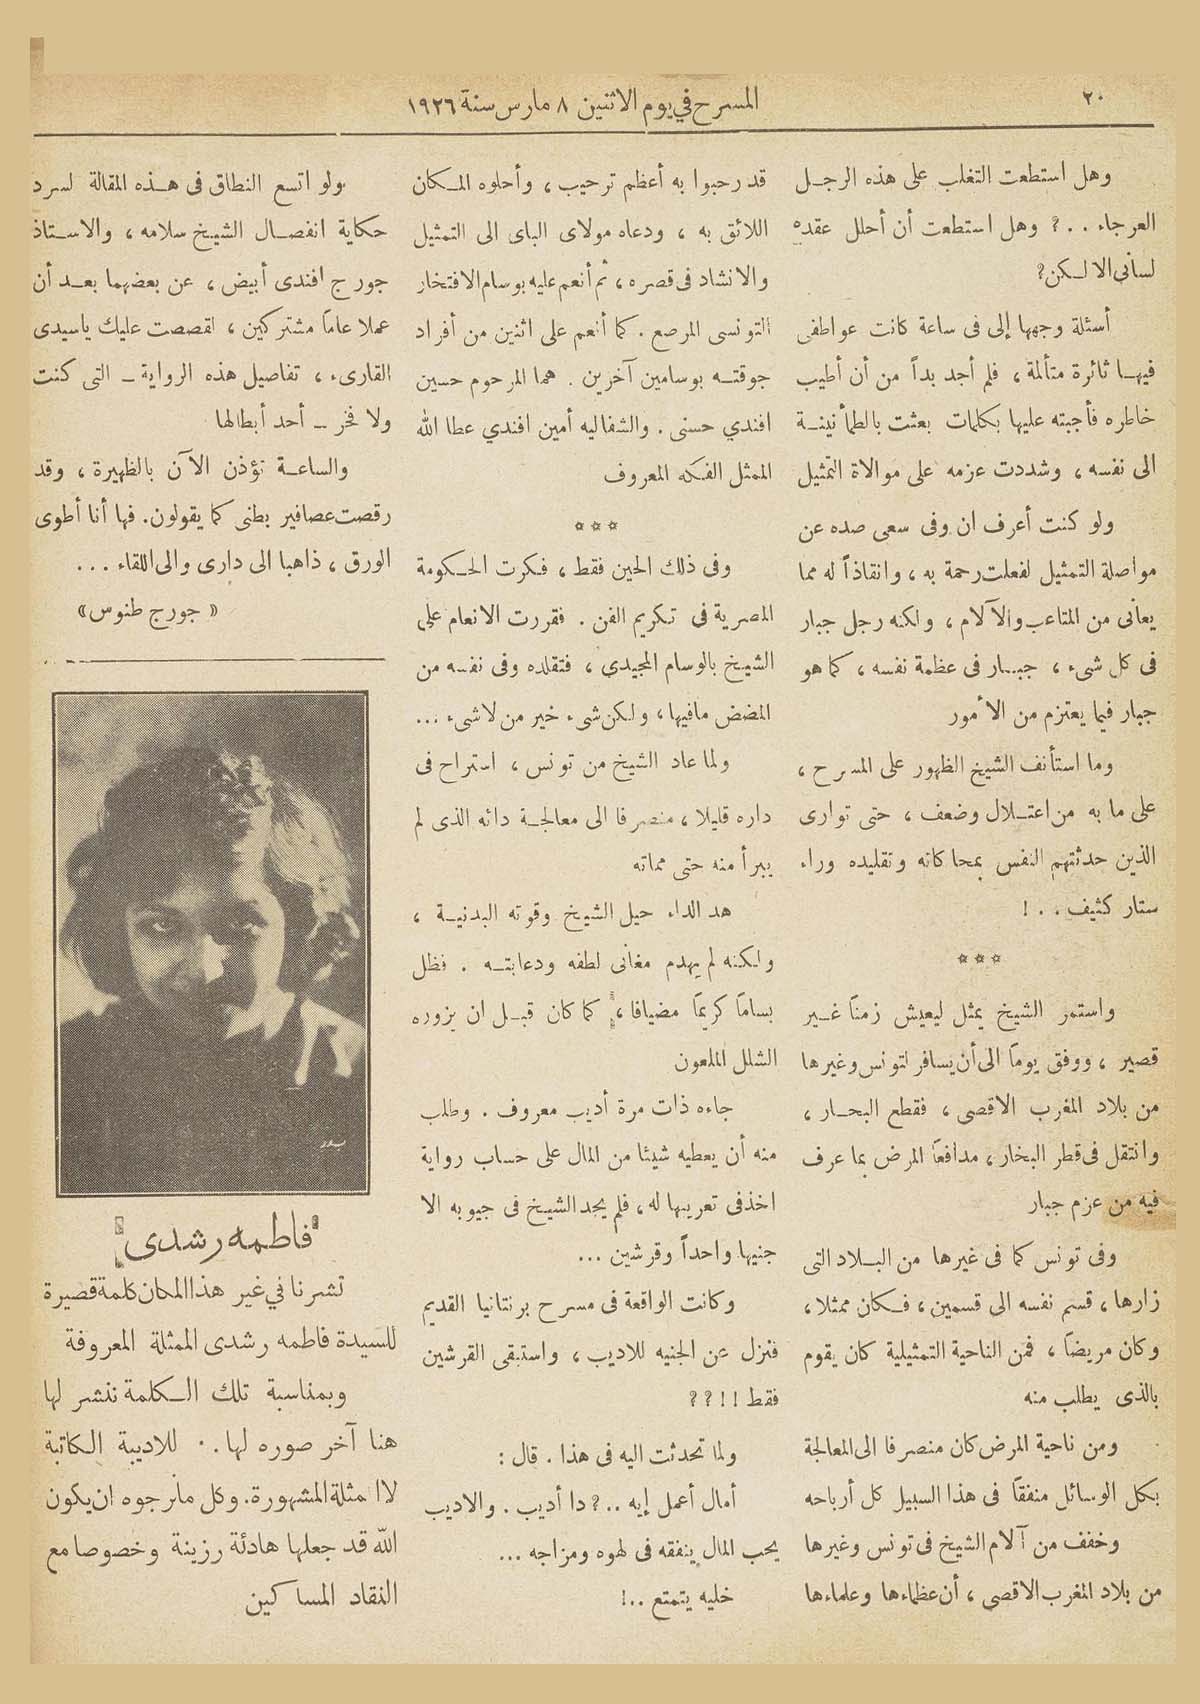 ٢٠
المسرح في يوم الاثنين ٨ مارس سنة ١٩٢٦
وهل استطعت التغلب على هذه الرجل
العرجاء . . ؟ وهل استطعت أن أحلل عقده
لسانى الالكن؟
أسئلة وجهها إلى فى ساعة كانت عواطفى
فيها ثائرة متألمة ، فلم أجد بداً من أن أطيب
خاطره فأجبته عليها بكلمات بعثت بالطمأنينة
الى نفسه ، وشددت عزمه على موالاة التمثيل
ولو كنت أعرف ان وفى سعى صده عن
مواصلة التمثيل لفعلت رحمة به ، وانقاذاً له مما
يعانى من المتاعب والآلام ، ولكنه رجل جبار
فى كل شىء ، جبار فى عظمة نفسه ، كما هو
جبار فيما يعتزم من الأمور
وما استأنف الشيخ الظهور على المسرح ،
على ما به من اعتلال وضعف ، حتى توارى
الذين حدثتهم النفس بمحاكاته وتقليده وراء
ستار كثيف . . !
☆ ☆ ☆
واستمر الشيخ يمثل ليعيش زمناً غير
قصير ، ووفق يوماً الى أن يسافر لتونس وغيرها
من بلاد المغرب الاقصى ، فقطع البحار ،
وانتقل فى قطر البخار ، مدافعاً المرض بما عرف
فيه من عزم جبار
وفى تونس كما فى غيرها من البلاد التى
زارها ، قسم نفسه الى قسمين ، فكان ممثلا ،
وكان مريضاً ، فمن الناحية التمثيلية كان يقوم
بالذى يطلب منه
ومن ناحية المرض كان منصرفا الى المعالجة
بكل الوسائل منفقاً فى هذا السبيل كل أرباحه
وخفف من آلام الشيخ فى تونس وغيرها
من بلاد المغرب الاقصى ، أن عظماءها وعلماءها
قد رحبوا به أعظم ترحيب ، وأحلوه المكان
اللائق به ، ودعاه مولاى الباى الى التمثيل
والانشاد فى قصره ، ثم أنعم عليه بوسام الافتخار
التونسى المرصع . كما أنعم على اثنين من أفراد
جوقته بوسامين آخرين . هما المرحوم حسين
افندي حسنى . والشفاليه أمين افندي عطا الله
الممثل الفكه المعروف
☆ ☆ ☆
وفى ذلك الحين فقط ، فكرت الحكومة
المصرية فى تكريم الفن . فقررت الانعام على
الشيخ بالوسام المجيدى ، فتقلده وفى نفسه من
المضض مافيها ، ولكن شىء خير من لاشىء ...
ولما عاد الشيخ من تونس ، استراح فى
داره قليلا ، منصرفا الى معالجة دائه الذى لم
يبرأ منه حتى مماته
هد الداء حيل الشيخ وقوته البدنية ،
ولكنه لم يهدم مغانى لطفه ودعابته . فظل
بساماً كريماً مضيافا ، كما كان قبل ان يزوره
الشلل الملعون
جاءه ذات مرة أديب معروف . وطلب
منه أن يعطيه شيئا من المال على حساب رواية
اخذ فى تعريبها له ، فلم يجد الشيخ فى جيوبه الا
جنيها واحداً وقرشين ...
وكانت الواقعة فى مسرح برنتانيا القديم
فنزل عن الجنيه للاديب ، واستبقى القرشين
فقط !!؟؟
ولما تحدثت اليه فى هذا . قال :
أمال أعمل إيه ..؟ دا أديب . والاديب
يحب المال ينفقه فى لهوه ومزاجه ...
خليه يتمتع ..!
ولو اتسع النطاق فى هذه المقالة لسرد
حكاية انفصال الشيخ سلامه ، والاستاذ
جورج افندى أبيض ، عن بعضهما بعد أن
عملا عاماً مشتركين ، لقصصت عليك ياسيدى
القارىء ، تفاصيل هذه الرواية ــ التى كنت
ولا فخر ــ أحد أبطالها
والساعة تؤذن الآن بالظهيرة ، وقد
رقصت عصافير بطنى كما يقولون. فها أنا أطوى
الورق ، ذاهبا الى دارى والى اللقاء ...
« جورج طنوس »
فاطمه رشدى
نشرنا في غير هذا المكان كلمة قصيرة
للسيدة فاطمه رشدى الممثلة المعروفة
وبمناسبة تلك الكلمة ننشر لها
هنا آخر صوره لها .. للاديبة الكاتبة
لا الممثلة المشهورة. وكل مانرجوه ان يكون
الله قد جعلها هادئة رزينة وخصوصا مع
النقاد المساكين